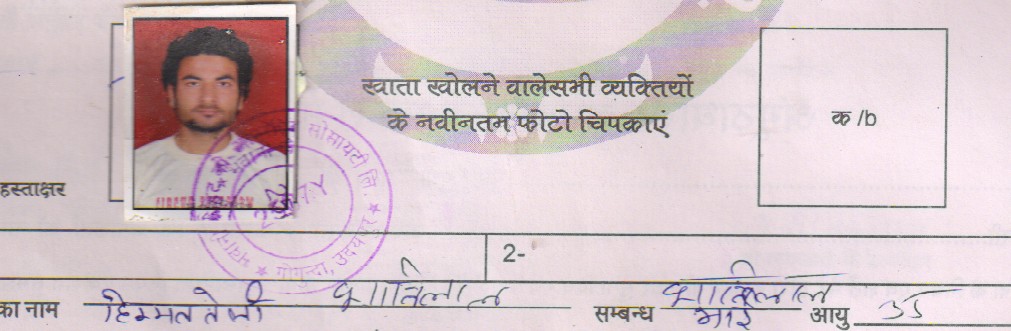 खाता खोलने वालेसभी व्यक्तियों
के नवीनतम फोटो चिपकाएं
क /b
हस्ताक्षर
सोसायटी लि
गोगुन्दा, उदयपुर
2-
का नाम हिम्मत तेली शान्तिलाल सम्बन्ध भाई आयु 35